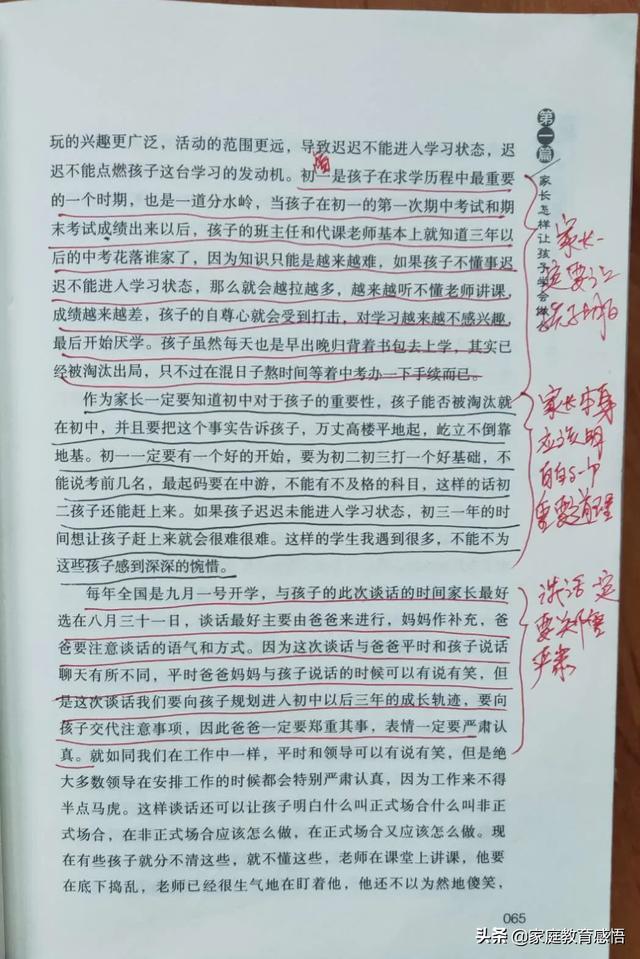 玩的兴趣更广泛，活动的范围更远，导致迟迟不能进入学习状态，迟
迟不能点燃孩子这台学习的发动机。初一是孩子在求学历程中最重要
的一个时期，也是一道分水岭，当孩子在初一的第一次期中考试和期
末考试成绩出来以后，孩子的班主任和代课老师基本上就知道三年以
后的中考花落谁家了，因为知识只能是越来越难，如果孩子不懂事迟
迟不能进入学习状态，那么就会越拉越多，越来越听不懂老师讲课，
成绩越来越差，孩子的自尊心就会受到打击，对学习越来越不感兴趣，
最后开始厌学。孩子虽然每天也是早出晚归背着书包去上学，其实已
经被淘汰出局，只不过在混日子熬时间等着中考办一下手续而已。
作为家长一定要知道初中对于孩子的重要性，孩子能否被淘汰就
在初中，并且要把这个事实告诉孩子，万丈高楼平地起，屹立不倒靠
地基。初一一定要有一个好的开始，要为初二初三打一个好基础，不
能说考前几名，最起码要在中游，不能有不及格的科目，这样的话初
二孩子还能赶上来。如果孩子迟迟未能进入学习状态，初三一年的时
间想让孩子赶上来就会很难很难。这样的学生我遇到很多，不能不为
这些孩子感到深深的惋惜。
每年全国是九月一号开学，与孩子的此次谈话的时间家长最好
选在八月三十一日，谈话最好主要由爸爸来进行，妈妈作补充，爸
爸要注意谈话的语气和方式。因为这次谈话与爸爸平时和孩子说话
聊天有所不同，平时爸爸妈妈与孩子说话的时候可以有说有笑，但
是这次谈话我们要向孩子规划进入初中以后三年的成长轨迹，要向
孩子交代注意事项，因此爸爸一定要郑重其事，表情一定要严肃认
真。就如同我们在工作中一样，平时和领导可以有说有笑，但是绝
大多数领导在安排工作的时候都会特别严肃认真，因为工作来不得
半点马虎。这样谈话还可以让孩子明白什么叫正式场合什么叫非正
式场合，在非正式场合应该怎么做，在正式场合又应该怎么做。现
在有些孩子就分不清这些，就不懂这些，老师在课堂上讲课，他要
在底下捣乱，老师已经很生气地在盯着他，他还不以为然地傻笑，
第一篇
家长怎样让孩子学会
家长一
定要让
孩子
家长本身
应该明
白的一个
重要道理
谈话一定
要郑重
严肃
065
头条 @家庭教育感悟